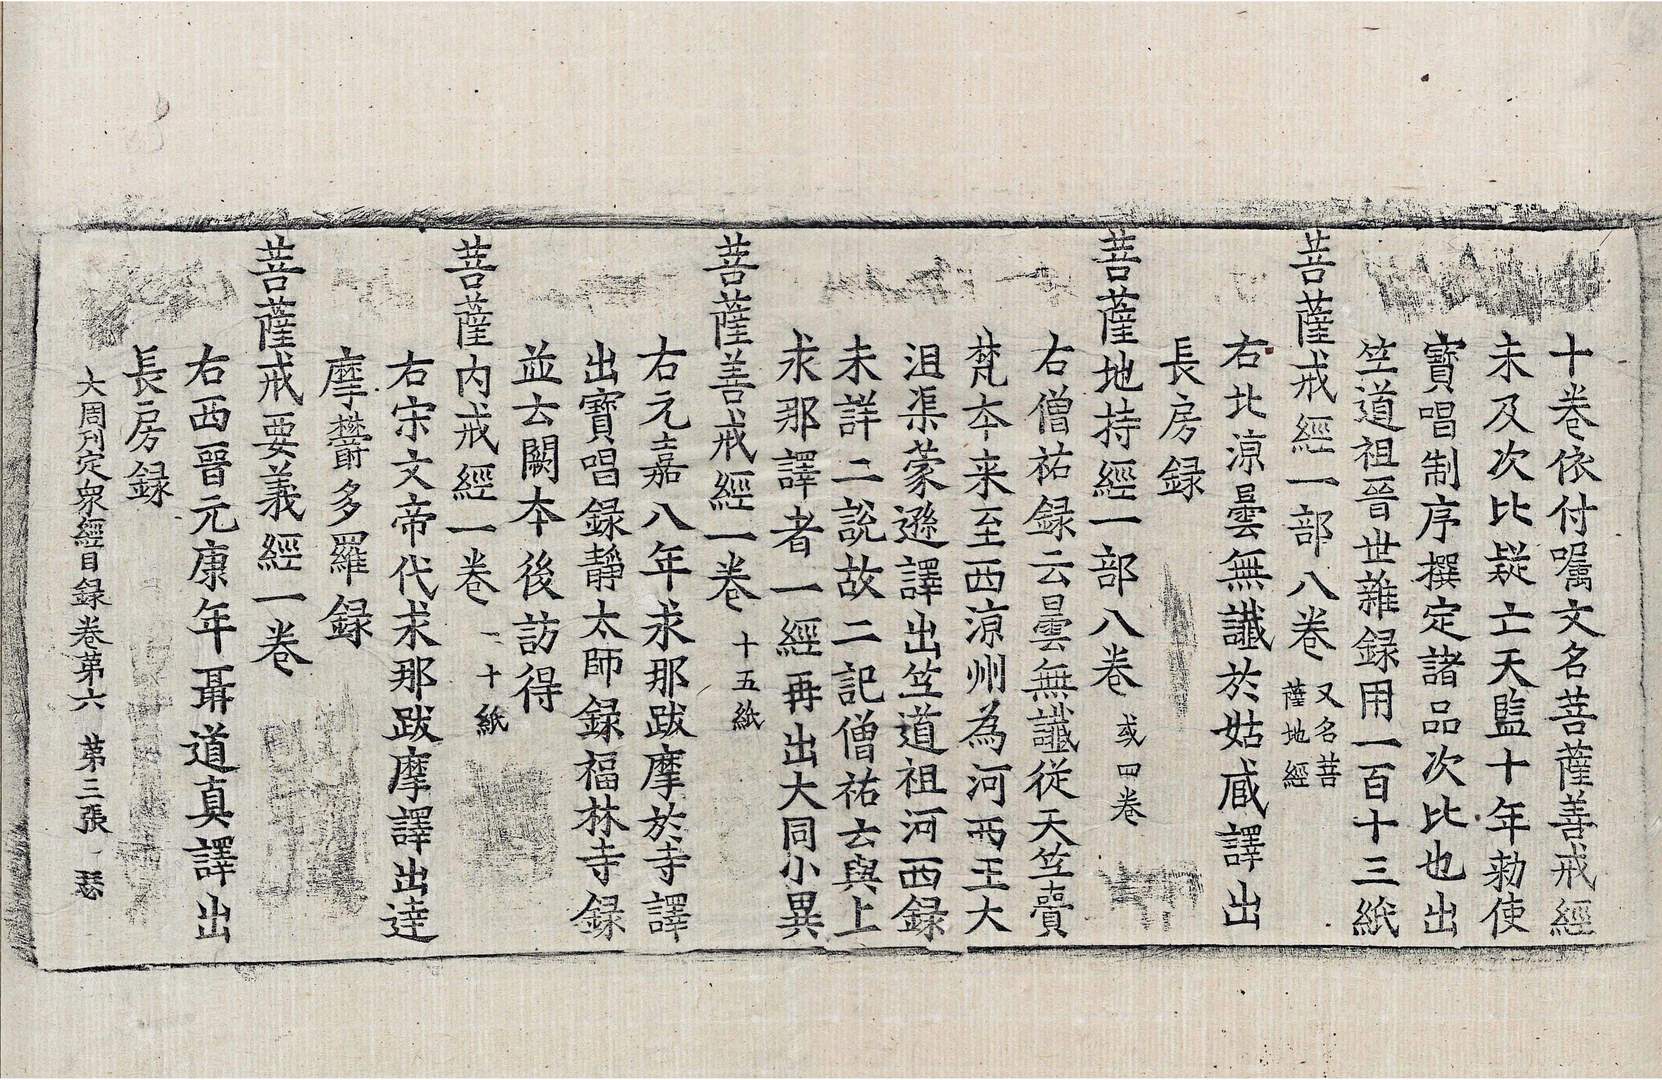 十卷依付囑文名菩薩善戒經
未及次比疑亡天監十年勅使
寶唱制序撰定諸品次比也出
竺道祖晉世雜録用一百十三紙
菩薩戒經一部八卷 又名菩薩地經
右北涼曇無讖於姑臧譯出
長房録
菩薩地持經一部八卷 或四卷
右僧祐録云曇無讖從天竺賷
梵夲来至西涼州為河西王大
沮渠蒙遜譯出竺道祖河西録
未詳二說故二記僧祐云與上
求那譯者一經再出大同小異
菩薩善戒經一卷 十五紙
右元嘉八年求那跋摩於寺譯
出寶唱録靜太師録福林寺録
並云闕本後訪得
菩薩内戒經一卷 二十紙
右宋文帝代求那跋摩譯出達
摩欝多羅録
菩薩戒要義經一卷
右西晉元康年聶道真譯出
長房録
大周刋定衆經目録卷第六 第三張 瑟